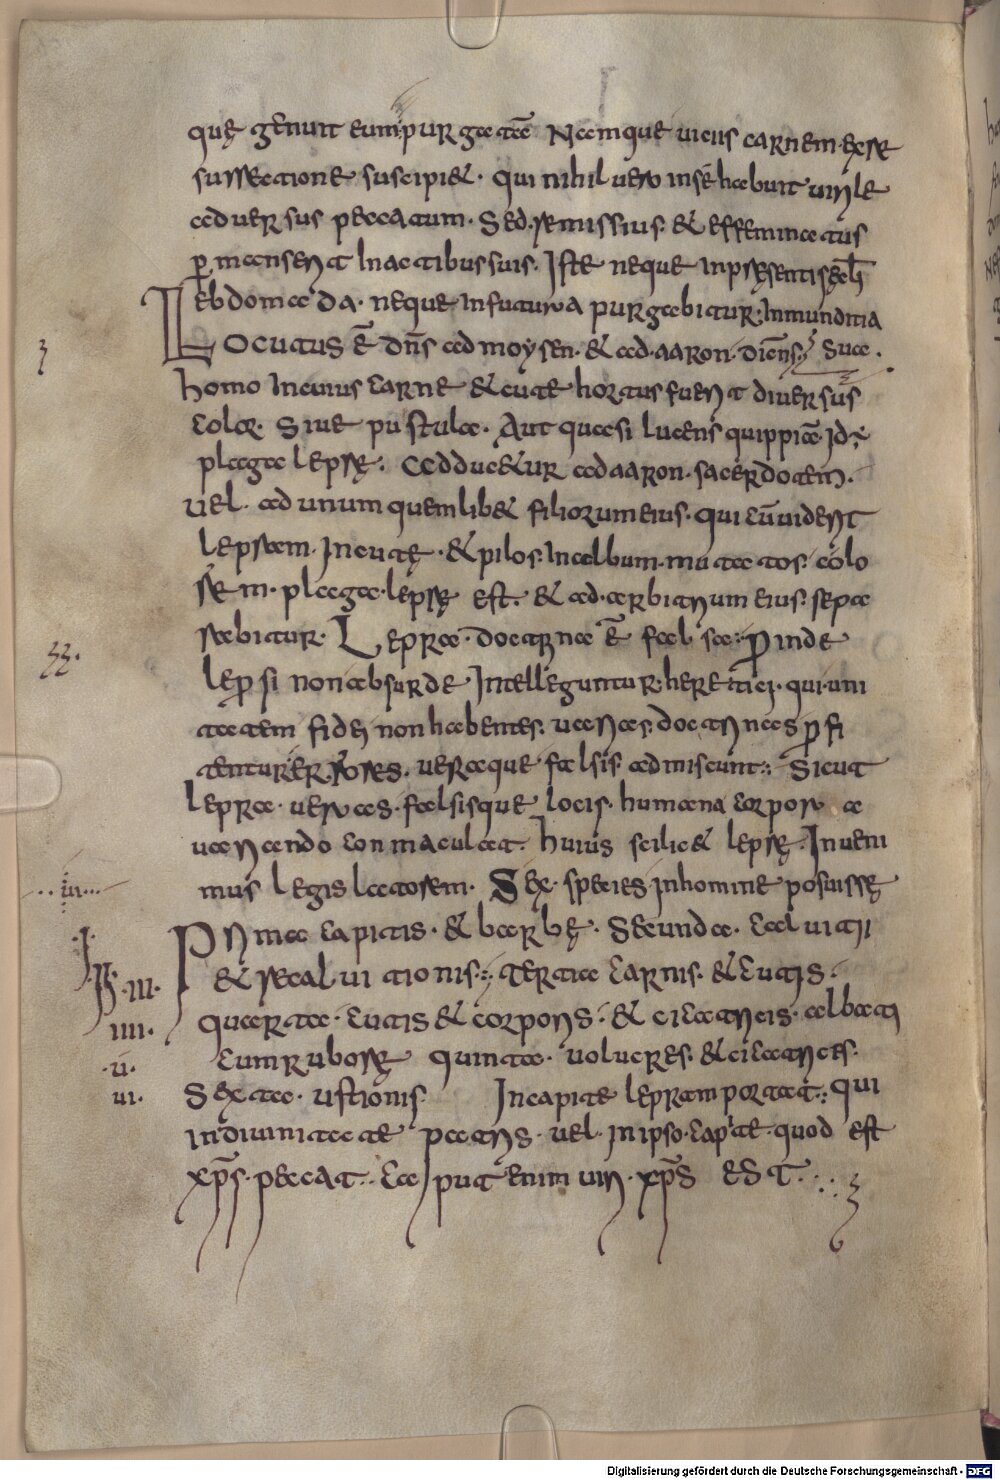 quę genuit eum purgatā Namque uicius carnem exre
surrectione suscipiet · qui nihil uero insé habuit uirile
aduersus peccatum · Sed remissius · & effeminatus
p mansert In actibus suis · Iste neque Inpręsenti
ebdomada · neque Infuturo purgabitur · Inmunditia
LOCUTUS Ē dn̄s ad moysen · & ad aaron · diens · Sua ·
homo In cuius carne & cute hortus fuert diuersus
color · Siue pustula · Aut quasi lucens quippiā · Id ÷
plaga leprę · Adducetur ad aaron · sacerdotem ·
uel · ad unum quemlib& filiorum eius · qui cū uiderit
lepram · Incute · & pilos · In album · mutatos · colo
rem · plaga · leprę est · & ad · arbitrium eius · sepa
rabitur · Lepra · doctrina Ē falsa · Proinde
leprosi non absurde Intelleguntur · heretici · qui uni
tatem fidei non habentes · uarias · doctrinas profi
tentur errores · ueraque falsis admiscunt · Sicut
lepra · ueros · falsisque locis · humana corpora a
uariando conmaculat · huius scilic& leprę · Inueni
mus legislatorem · Sex · species In homine posuisse
Prima capitis · & barbę · Secunda · caluitii
& recaluitionis · Tertia carnis · & cutis ·
quarta · cutis & corporis · & cicatricis · albati
cum rubore quinta · uolueres · & cicatrices ·
Sexta · ustionis · In capite lepram portat · qui
In diuinitate patris · uel · In ipso capite · quod est
xp̄s · peccat · Caput enim uiri · xp̄s EST
·III·
I·
II· III·
IIII·
·U·
UI·
Digitalisierung gefördert durch die Deutsche Forschungsgemeinschaft - DFG